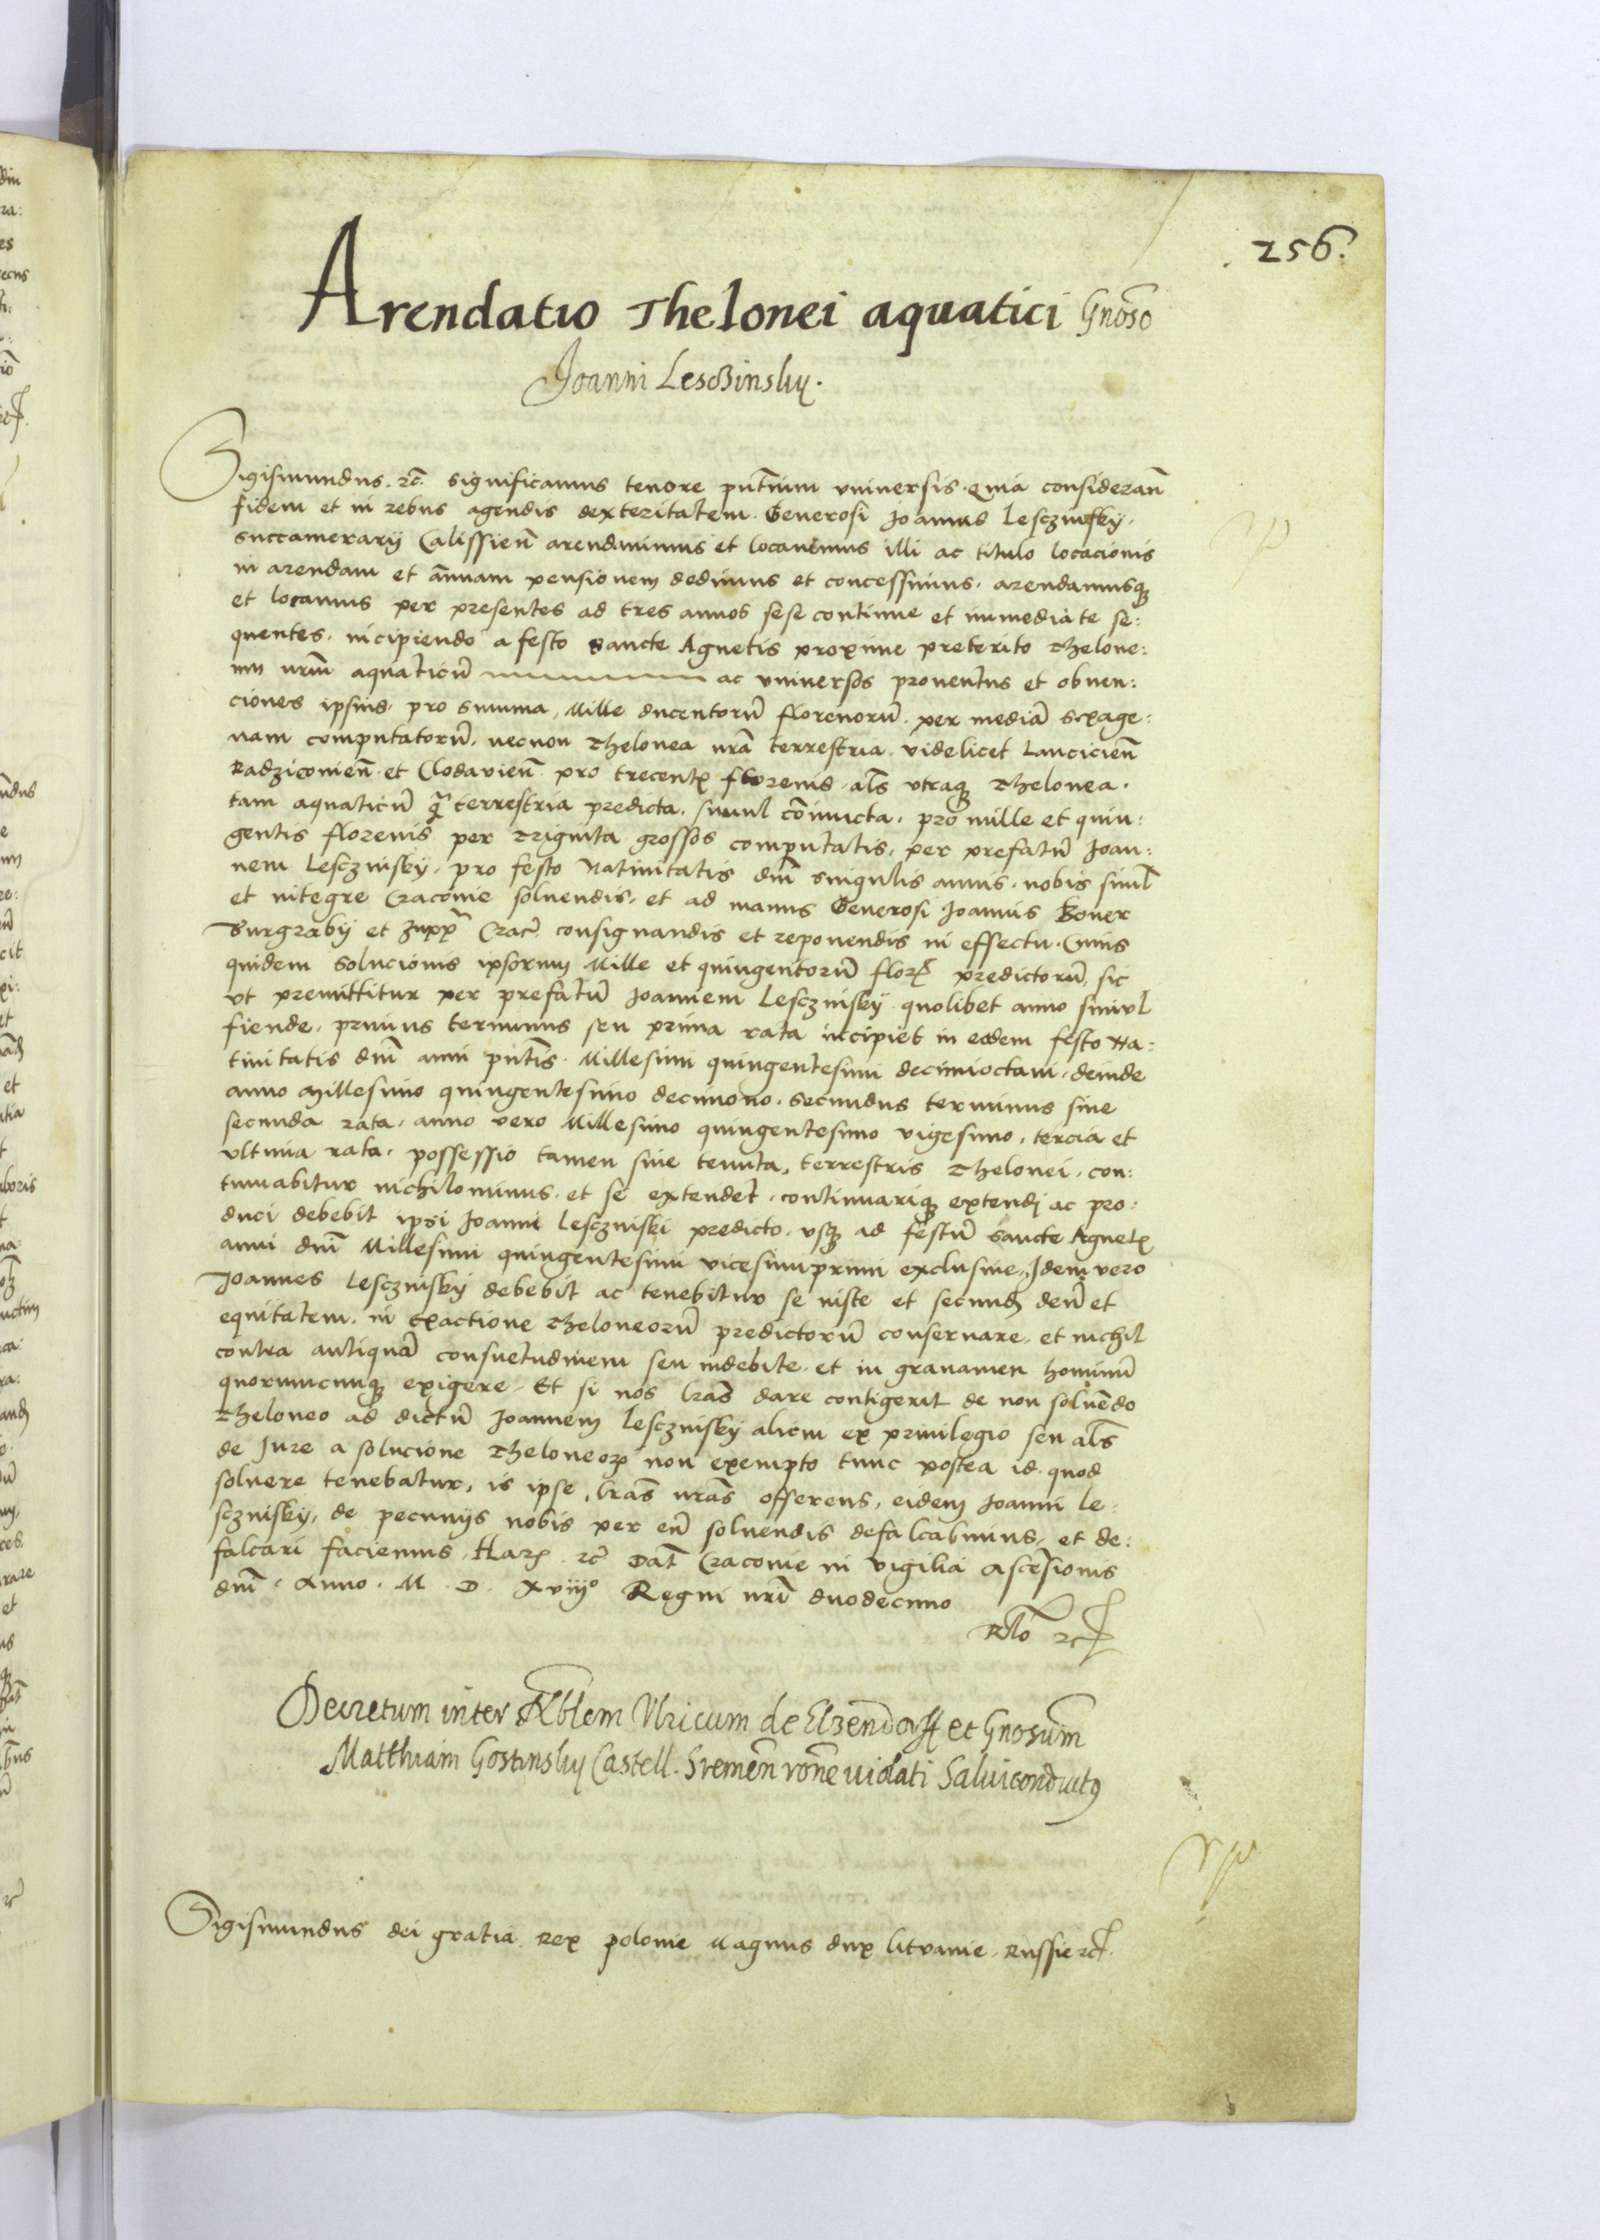 256.
Arendatio Thelonei aquatici Gnoso
Joanni Lesczinsky.
Sigismundus. rc̃. significamus tenore pñtium vniuersis. Quia consideran̄
fidem et in rebus agendis dexteritatem. Generosi Joannis Lesczinsky.
succamerarij Calissien̄ arendauimus et locauimus illi ac titulo locacionis
in arendam et ānuam pensionem dedimus et concessimus. arendamusq3
et locamus per presentes ad tres annos sese continue et immediate se:
quentes. incipiendo a festo Sancte Agnetis proxime preterito Thelone:
um nr̄m aquaticū ac vniuersos prouentus et obuen:
ciones ipsius. pro summa, Mille ducentorū florenorū. per mediā sexage:
nam computatorū. necnon Thelonea nr̄a terrestria. videlicet Lancicien̄
Radzieouien̄ et Clodauien̄. pro trecentꝭ florenis. al̄s vtraq3 Thelonea.
tam aquaticū q̄ terrestria predicta. simul cōiuncta. pro mille et quin:
gentis florenis per Triginta grossos computatis. per prefatū Joan:
nem Lesczinsky. pro festo Natiuitatis dn̄i singulis annis. nobis simul
et integre Cracouie soluendis. et ad manus Generosi Joannis Boner
Burgrabij et zupp̄ Crac̄. consignandis et reponendis in effectu. Cuius
quidem solucionis ipsorum Mille et quingentorū florꝫ predictorū. sic
vt premittitur per prefatū Joannem Lesczinsky quolibet anno simul
fiende. primus terminus seu prima rata incipiet in eodem festo Na:
tiuitatis dn̄i anni pn̄tis. Millesimi quingentesimi decimioctaui. deinde
anno Millesimo quingentesimo decimono. Secundus terminus siue
secunda rata. anno vero Millesimo quingentesimo vigesimo. tercia et
vltima rata. possessio tamen siue tenuta, terrestris Thelonei. con:
tinuabitur nichilominus. et se extendet. continuariq3 extendj ac pro:
duci debebit ipsi Joanni Lesczinski predicto. vsq3 ad festū Sancte Agnetꝭ
anni dn̄i Millesimi quingentesimi vicesimiprimi exclusiue. Idem vero
Joannes Lesczinsky debebit ac tenebitur se iuste et secundꝫ deū et
equitatem. in Exactione Theloneorū predictorū conseruare. et nichil
contra antiquā consuetudinem seu indebite. et in grauamen hominū
quorumcunq3 exigere. Et si nos lr̄as dare contigerit de non soluēdo
Theloneo ad dictū Joannem Lesczinsky alicui ex priuilegio seu al̄s
de Jure a solucione Theloneoꝝ non exempto tunc postea id. quod
soluere tenebatur, is ipse, lr̄as nr̄as offerens, eidem Joanni Le:
sczinsky, de pecunijs nobis per eū soluendis defalcabimus, et de:
falcari faciemus. Harꝫ rc̃ Dat̄ Cracouie in vigilia Ascēsionis
dn̄i. Anno. M. D. Xviijº Regni nr̄i duodecimo
Rl̄o rc̃
Decretum inter Vlricum de Elzendorff et Gnosum
Matthiam Gostinsky Castell. Sremen̄ rōne violati Saluiconductꝰ
Sigismundus dei gratia Rex polonie Magnus dux litvanie. Russie rc̃.